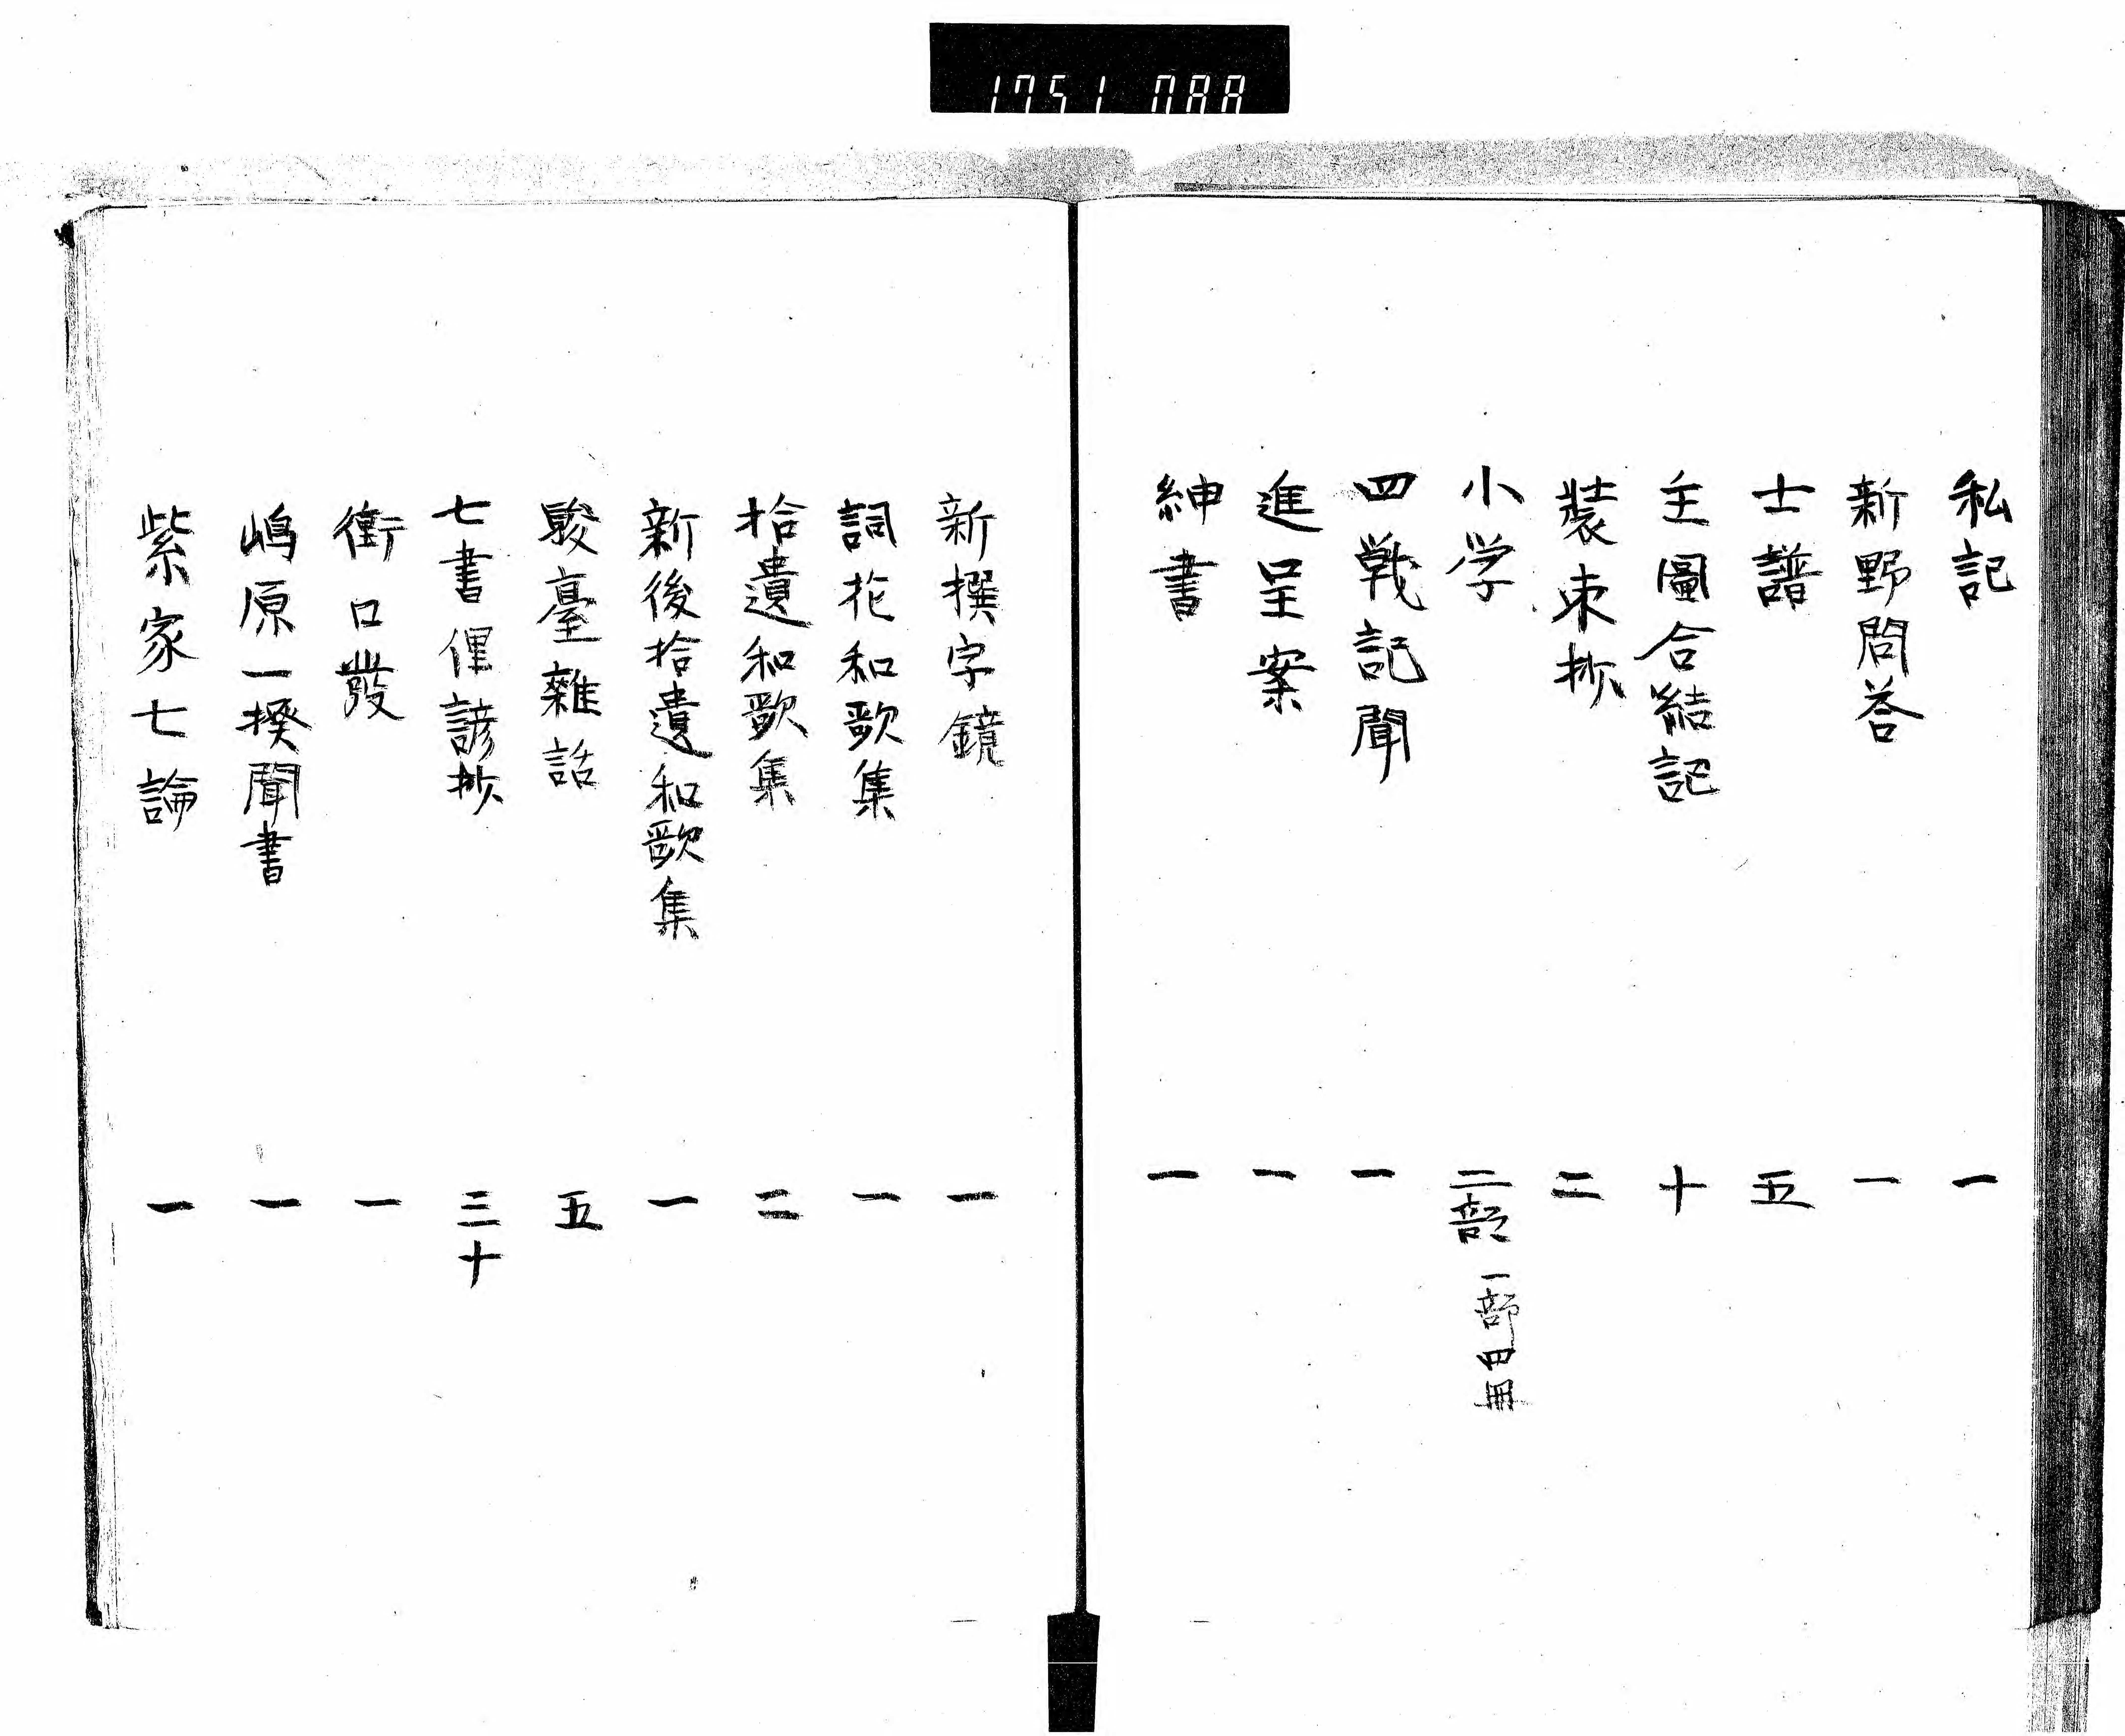 1751 088
私記 一
新野問答 一
士譜 五
主圖合結記 十
装束抄 二
小学 二部 一部四冊
四戰記聞 一
進呈案 一
紳書 一
新撰字鏡 一
詞花和歌集 一
拾遺和歌集 二
新後拾遺和歌集 一
駿臺雜話 五
七書俚諺抄 三十
衝口發 一
嶋原一揆聞書 一
紫家七論 一